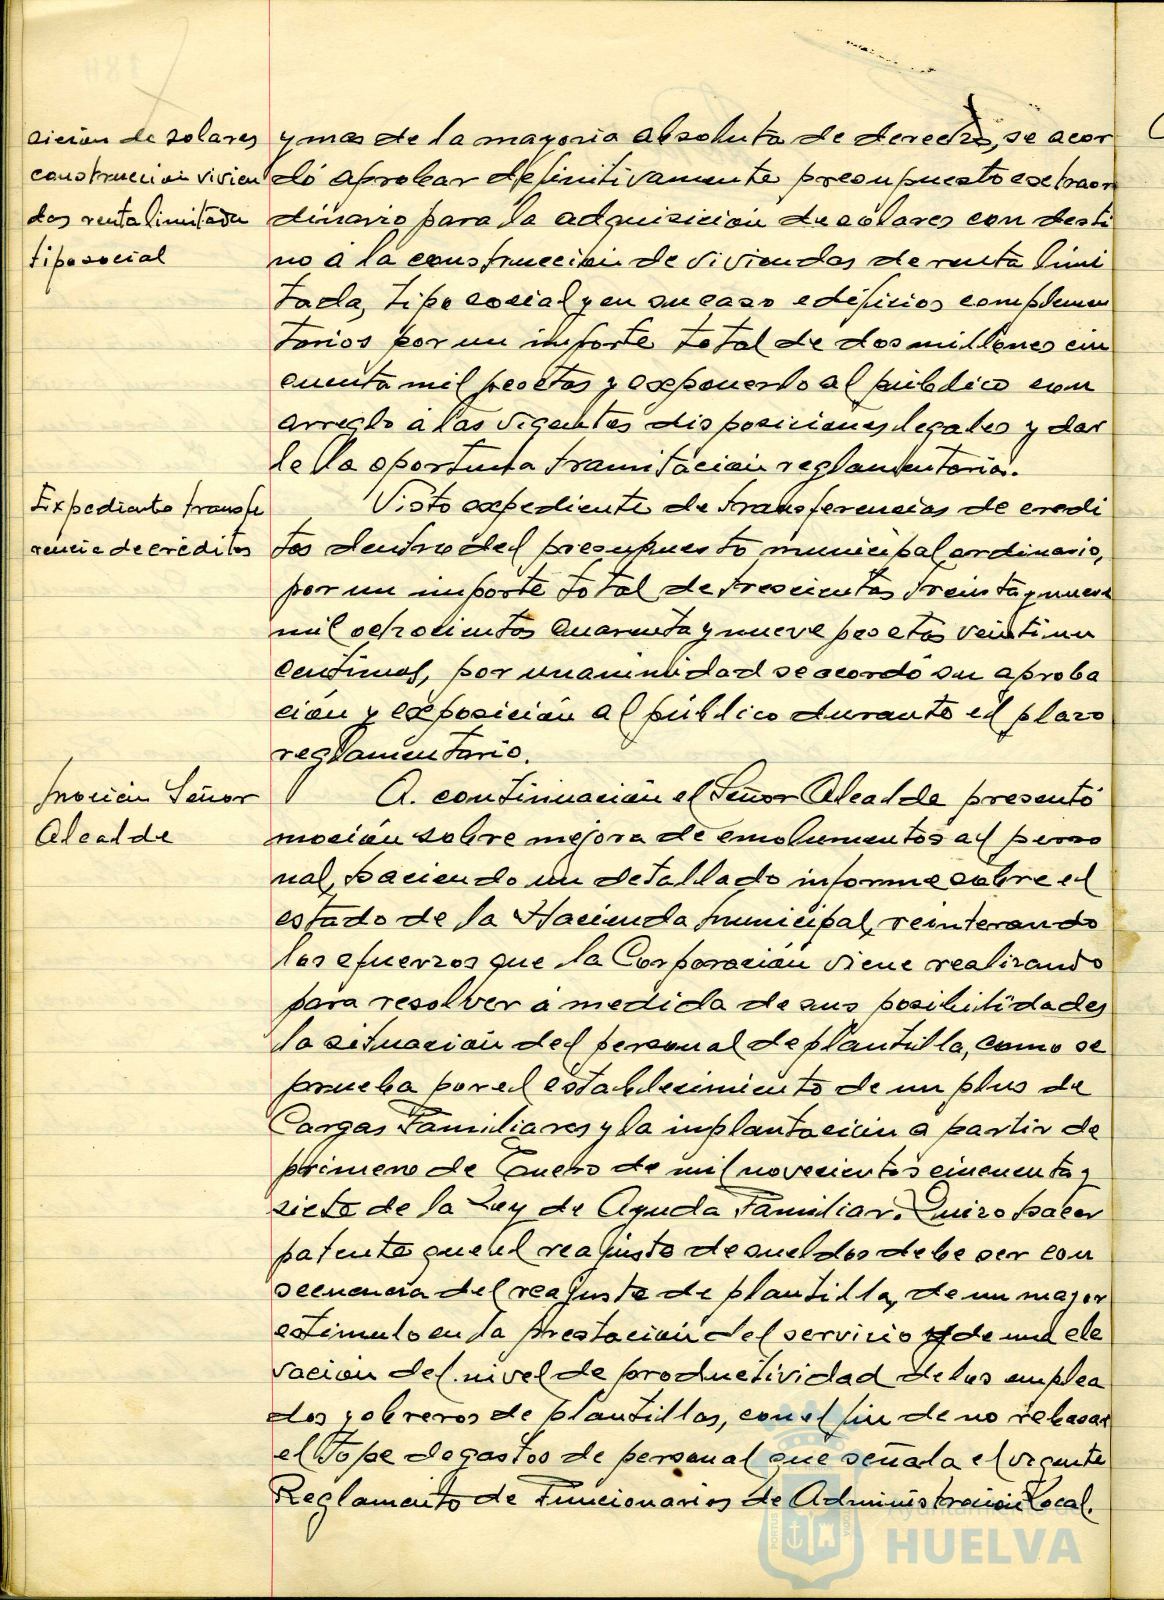 sición de solares
construcción vivien
das renta limitada
tipo social
y mas de la mayoria absoluta de derecho, se acor
dó aprobar definitivamente presupuesto extraor
dinario para la adquisición de solares con desti
no á la construcción de viviendas de renta limi
tada, tipo social y en su caso edificios complemen
tarios por un importe total de dos millones cin
cuenta mil pesetas y exponerlo al público con
arreglo á las vigentes disposiciones legales y dar
le la oportuna tramitación reglamentaria.
Expediente transfe
rencia de créditos
Visto expediente de transferencias de credi
tos dentro del presupuesto municipal ordinario,
por un importe total de trescientas treinta y nueve
mil ochocientas cuarenta y nueve pesetas veintiun
centimos, por unanimidad se acordó su aproba
ción y exposición al público durante el plazo
reglamentario.
Moción Señor
Alcalde
A. continuación el Señor Alcalde presentó
moción sobre mejora de emolumentos al perso
nal, haciendo un detallado informe sobre el
estado de la Hacienda Municipal, reinterando
los efuerzos que la Corporación viene realizando
para resolver á medida de sus posibilidades
la situación del personal de plantilla, como se
prueba por el establecimiento de un plus de
Cargas Familiares y la inplantación a partir de
primero de Enero de mil novecientos cincuenta y
siete de la Ley de Ayuda Familiar. Quizo hacer
patente que el reajuste de sueldos debe ser con
secuencia del reajuste de plantilla, de un mayor
estimulo en la prestación del servicio y de una ele
vación del nivel de productividad de los emplea
dos y obreros de plantillas, con el fin de no rebasar
el tope de gastos de personal que señala el vigente
Reglamento de Funcionarios de Administración Local.
Ayuntamiento de
HUELVA